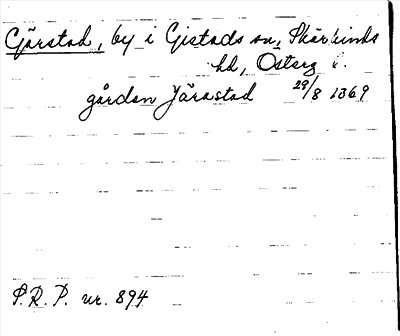 Gärstad, by i Gistads sn, Skärkinds
hd, Österg l.
gården Järastad 29/8 1369
S.R.P. nr. 894